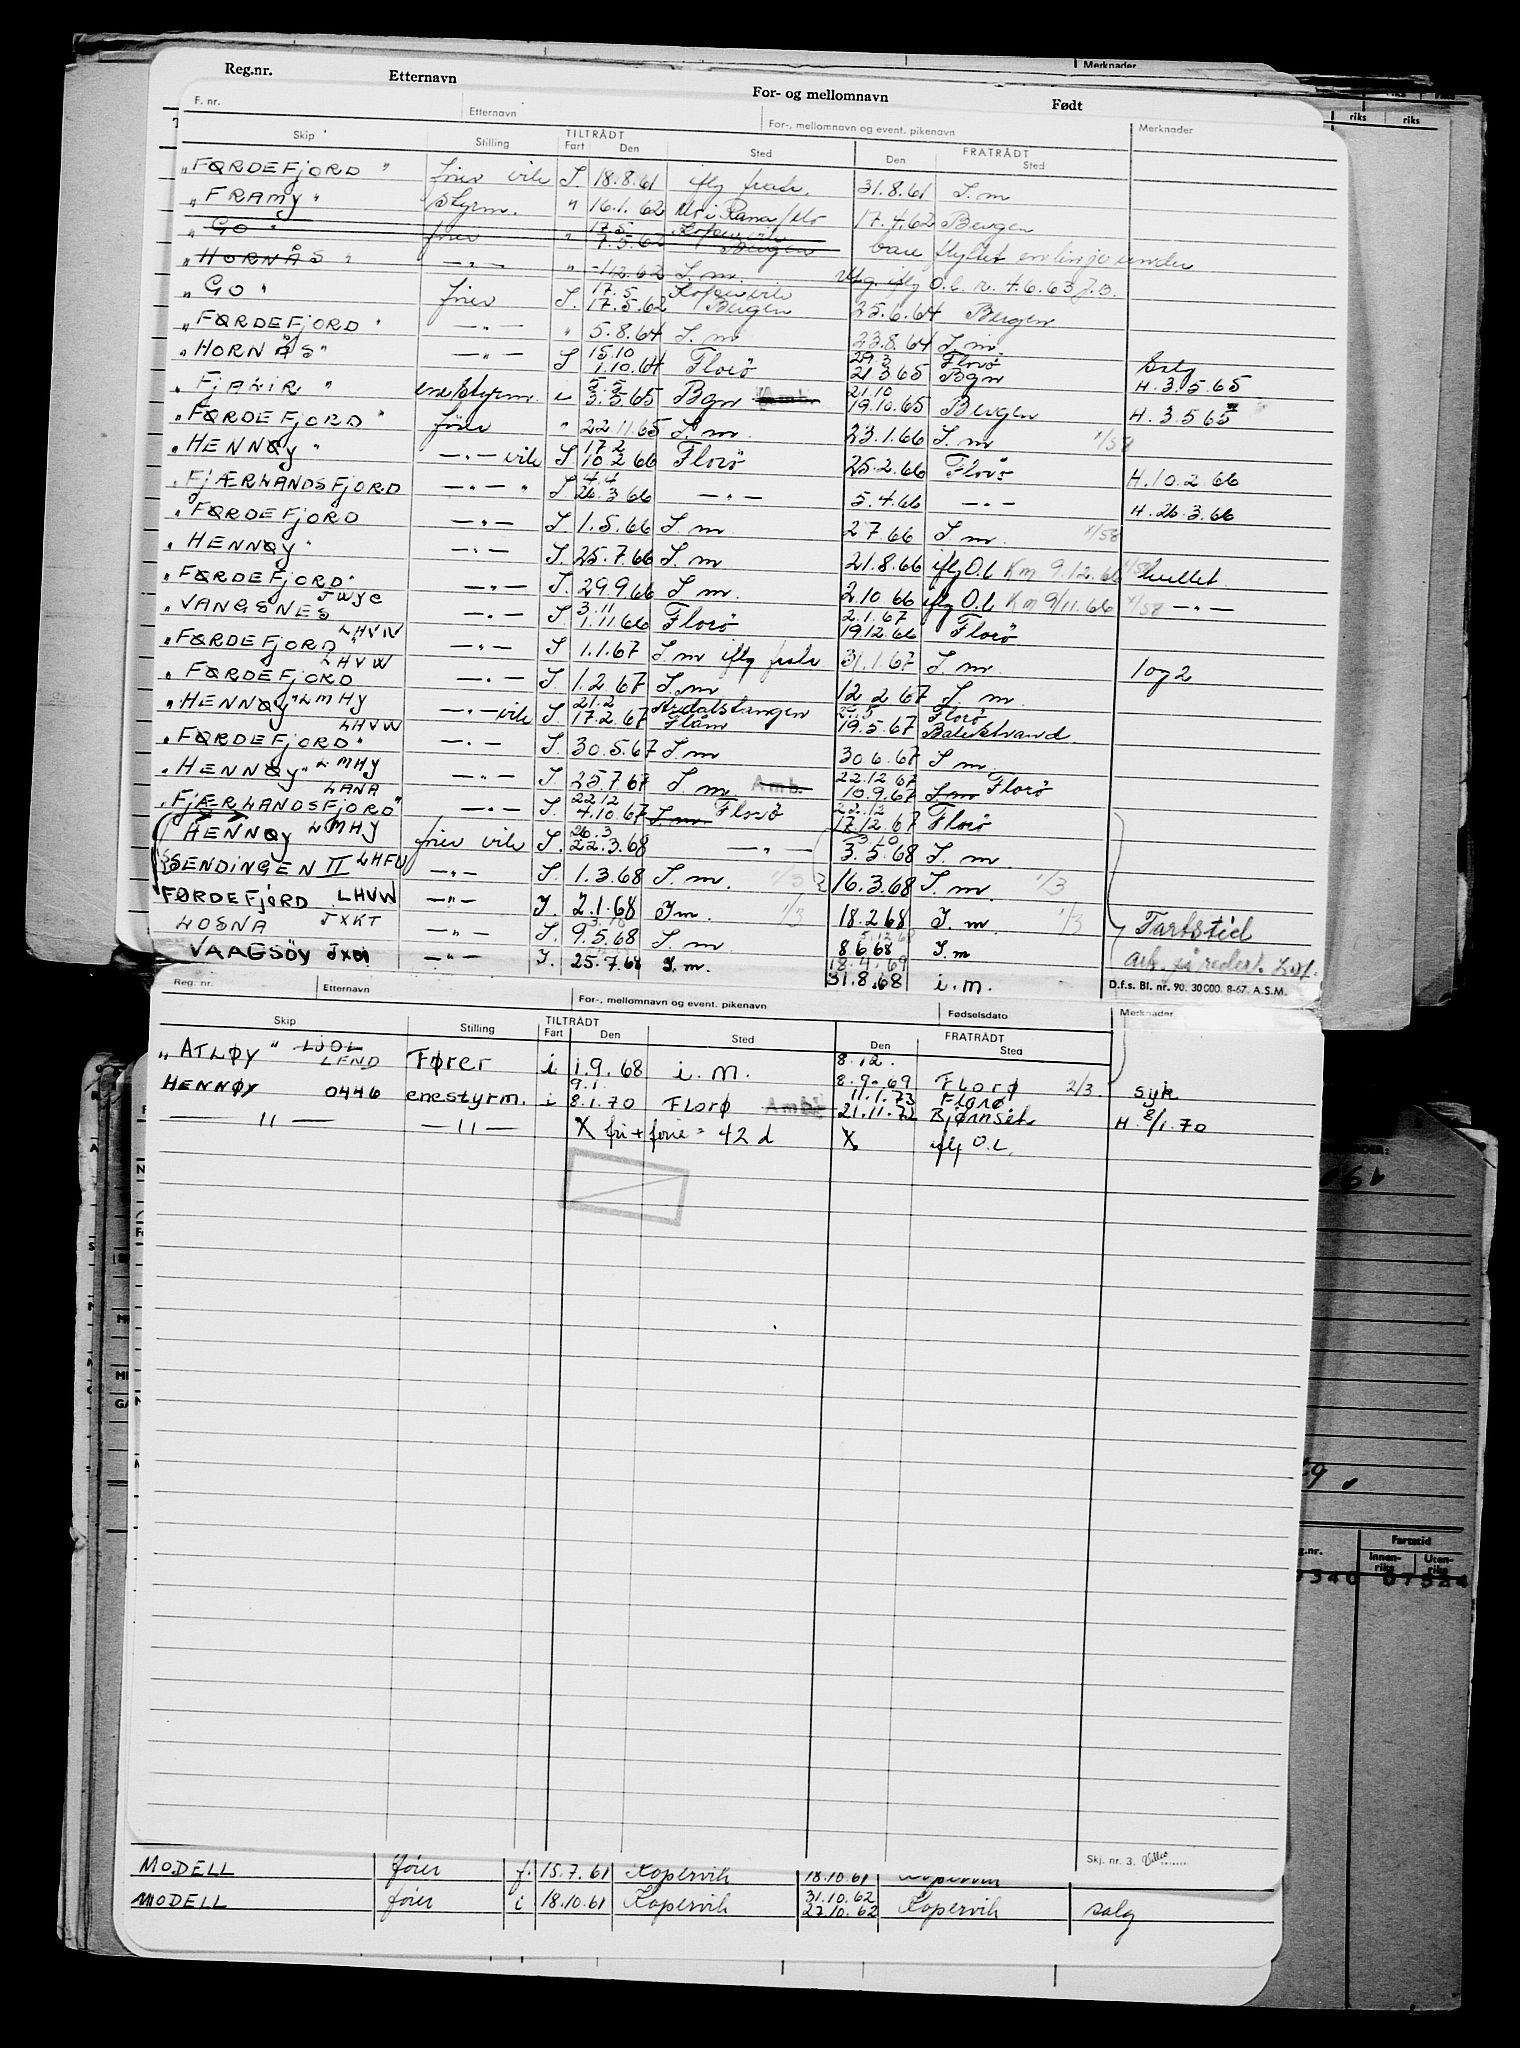 Merknader
Reg.nr. Etternavn For- og mellomnavn Født
riks riks
F. nr. Etternavn For-, mellomnavn og event. pikenavn Merknader
Skip Stilling TILTRÅDT Fart Den Sted FRATRÅDT Den Sted
"FØRDEFJORD" fører vik S. 18.8.61 iflg 31.8.61 S.m
"FRAMY" styrm. " 16.1.62 Mo i Rana 17.4.62 Bergen
"GO" fører " 17.5 7.5.62 Kopervik Bergen bare flyttet en linje under
"HORNÅS" —"— " -12.62 S.m. iflg O.L. 4.6.63 J.B.
"GO" fører S. 17.5 17.5.62 Kopervik Bergen 25.6.64 Bergen
"FØRDEFJORD" —"— " 5.8.64 S.m 23.8.64 S.m
"HORNÅS" —"— S 15.10 1.10.64 Florö 29.3 21.3.65 Florö Bgn Salg H.3.5.65
"FJALIR" enestyrm. i 5.5 3.5.65 Bgn Amb. 21.10 19.10.65 Bergen H.3.5.65
"FØRDEFJORD" fører " 22.11.65 S.m. 23.1.66 S.m 1/58
"HENNØY" —"— vik S 17.2 10.2.66 Florö 25.2.66 Florö H.10.2.66
"FJÆRLANDSFJORD —"— " S 4.4 26.3.66 —"— 5.4.66 —"— H.26.3.66
"FØRDEFJORD —"— S. 1.5.66 S.m 2.7.66 S.m. 1/58
"HENNØY" —"— S. 25.7.66 S.m 21.8.66 iflg O.L Km 9.12.66 1/58 hullet
"FØRDEFJORD" —"— S. 29.9.66 S.m. 2.10.66 iflg O.L Km 9/11.66 1/58 —"—
"VANGSNES JWJC —"— S 3.11 1.11.66 Florö 2.1.67 19.12.66 Florö
"FØRDEFJORD" LHVW —"— S 1.1.67 S.m iflg 31.1.67 S.m 1 og 2
"FØRDEFJORD LHVW —"— S. 1.2.67 S.m 12.2.67 S.m
"HENNØY" LMHY —"— vik S. 21.2 17.2.67 Årdalstangen Flåm 25.5 19.5.67 Florö Balestrand.
"FØRDEFJORD" LHVW —"— S. 30.5.67 S.m 30.6.67 S.m
"HENNØY" LMHY —"— S. 25.7.67 S.m Amb. 22.12.67 10.9.67 S.m Florö
"FJÆRLANDSFJORD" LANA —"— S. 22.12 4.10.67 S.m Florö 22.12 17.12.67 Florö
HENNØY LMHY fører vik S. 26.3 22.3.68 —"— 3.5.68 S.m
SENDINGEN II LHFU —"— S. 1.3.68 S.m. 1/3 16.3.68 S.m. 1/3
FØRDEFJORD LHVW —"— S. 2.1.68 S.m. 1/3 18.2.68 S.m. 1/3
LOSNA JXKT —"— S. 9.5.68 S.m 8.6.68 S.m Fartstid
VAAGSÖY —"— S. 25.7.68 S.m. 18.4.69 31.8.68 i.m.
D.f.s. Bl. nr. 90. 30000. 8-67. A.S.M.
Reg. nr. Etternavn For-, mellomnavn og event. pikenavn Fødselsdato Merknader
Skip Stilling TILTRÅDT Fart Den Sted FRATRÅDT Den Sted
"ATLØY" LJOL LEND Fører i 1.9.68 i.m. 8.12. 8.9.69 Florø 2/3. syk
HENNØY 0446 enestyrm. i 9.1. 8.1.70 FLORØ Amb. 11.1.73 21.11.72 Florø Bjørnset. H. 8/1.70
—"— —"— X fri + ferie = 42 d X iflg O.L.
Skj. nr. 3.
MODELL fører f. 15.7.61 Kopervik 18.10.61 Kopervik
MODELL fører i 18.10.61 Kopervik 31.10.62 27.10.62 Kopervik salg
Fartstid
Innen-riks Uten-riks